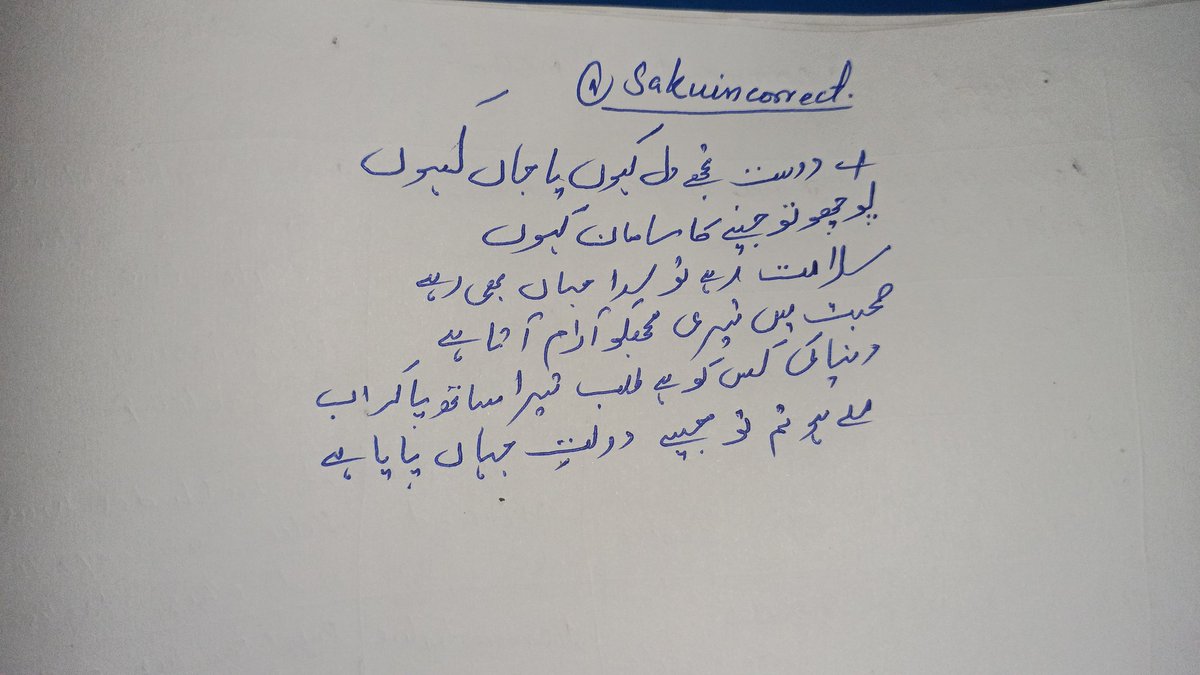 @Sakuincorrect.
اے دوست تجھے دل کہوں یا جاں کہوں
پوچھو تو جینے کا سامان کہوں
سلامت رہے تو سدا جہاں بھی رہے
صحبت میں تیری مجھکو آرام آتا ہے
دنیا کی کس کو ہے طلب تیرا ساتھ پا کر اب
ملے ہو تم تو جیسے دولتِ جہاں پایا ہے